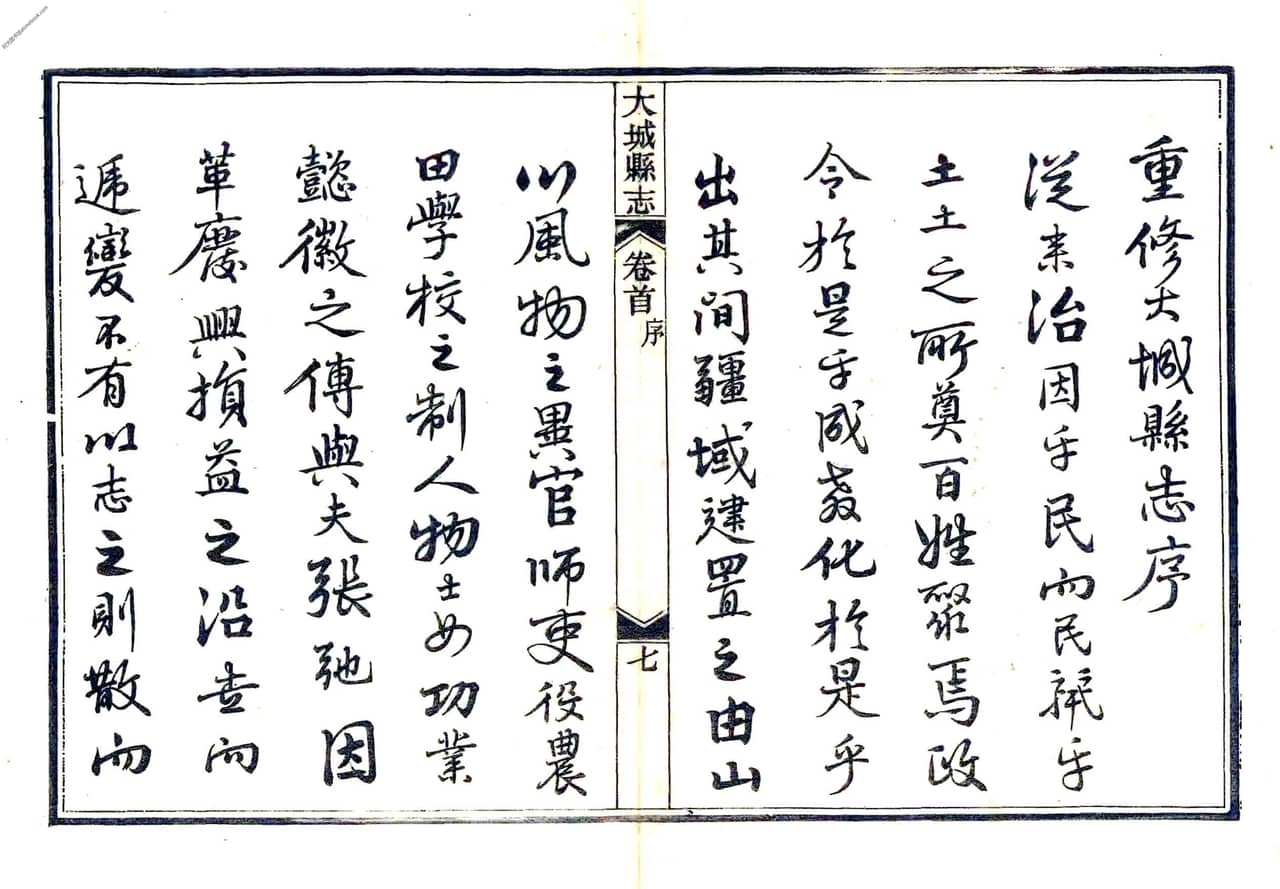 重修大城縣志序
從来治因乎民而民繫乎
土土之所奠百姓聚焉政
令於是乎成教化於是乎
出其間疆域建置之由山
大城縣志
卷首
序
七
川風物之異官師吏役農
田學校之制人物士女功業
懿徽之傳與夫張弛因
革廢興損益之沿書而
遞變不有以志之則散而